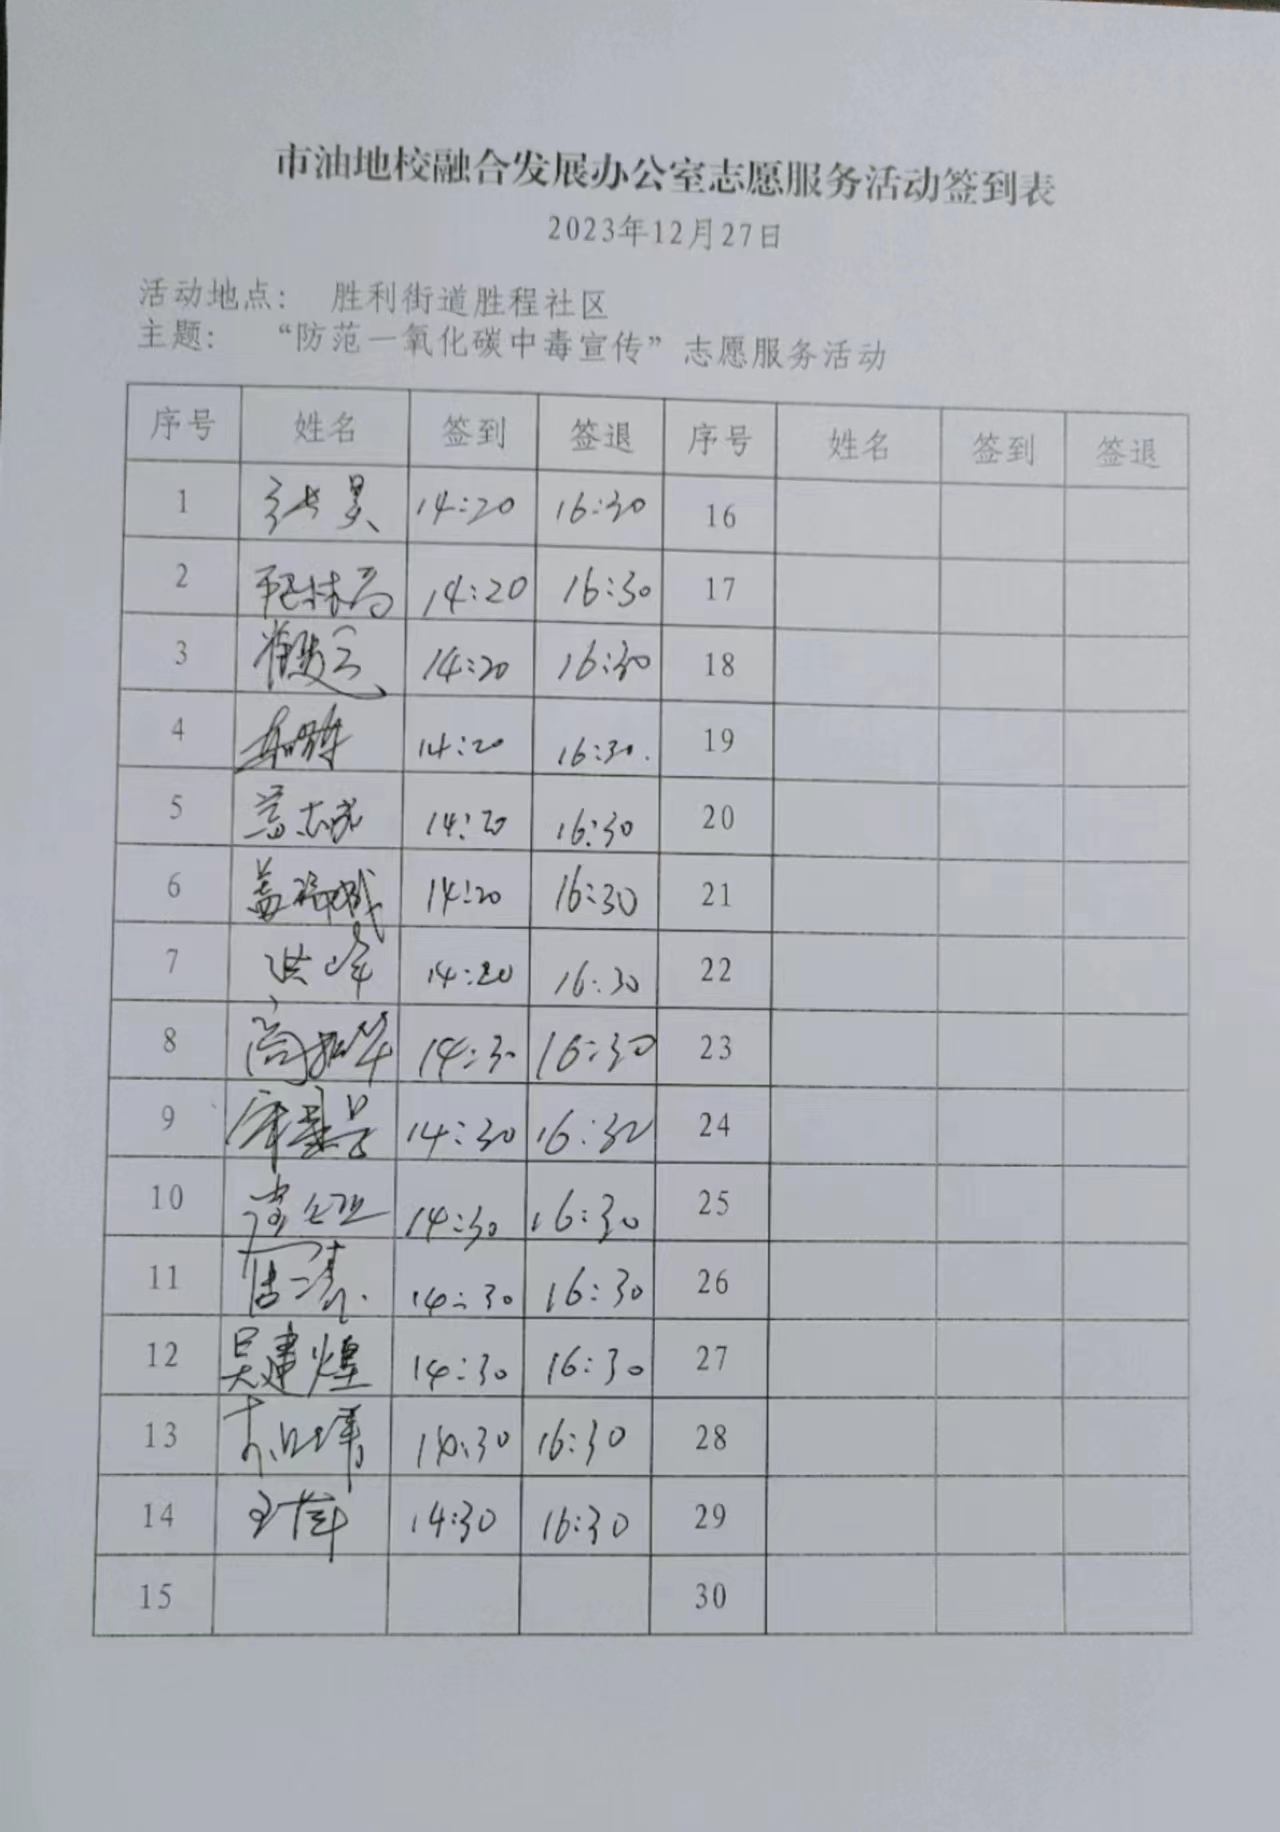 市油地校融合发展办公室志愿服务活动签到表
2023年12月27日
活动地点： 胜利街道胜程社区
主题： “防范一氧化碳中毒宣传”志愿服务活动
序号 姓名 签到 签退 序号 姓名 签到 签退
1 张昊 14:20 16:30 16
2 14:20 16:30 17
3 14:20 16:30 18
4 14:20 16:30. 19
5 14:20 16:30 20
6 14:20 16:30 21
7 洪峰 14:20 16:30 22
8 14:30 16:30 23
9 14:30 16:30 24
10 14:30 16:30 25
11 14:30 16:30 26
12 吴建煌 14:30 16:30 27
13 14:30 16:30 28
14 14:30 16:30 29
15 30